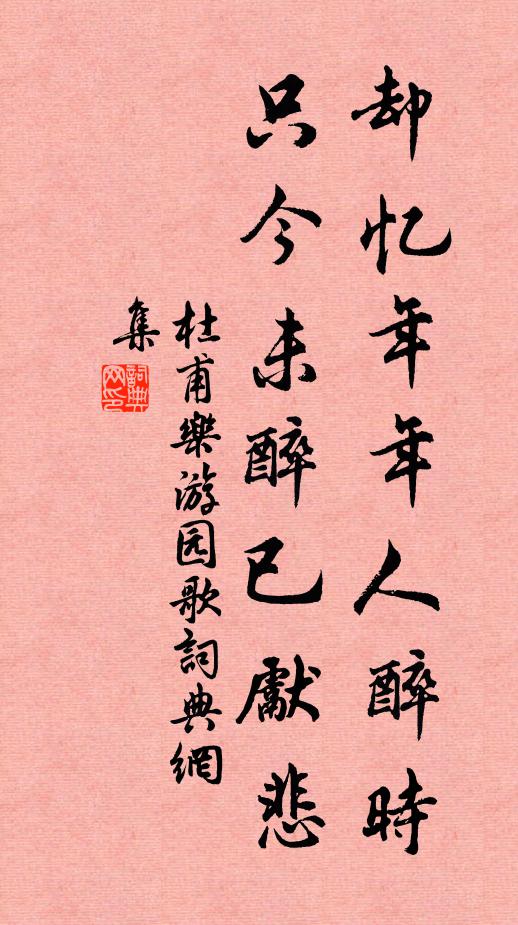 却忆年年人醉时
只今未醉已獻悲
杜甫樂游园歌詞典網
集
詞典網印